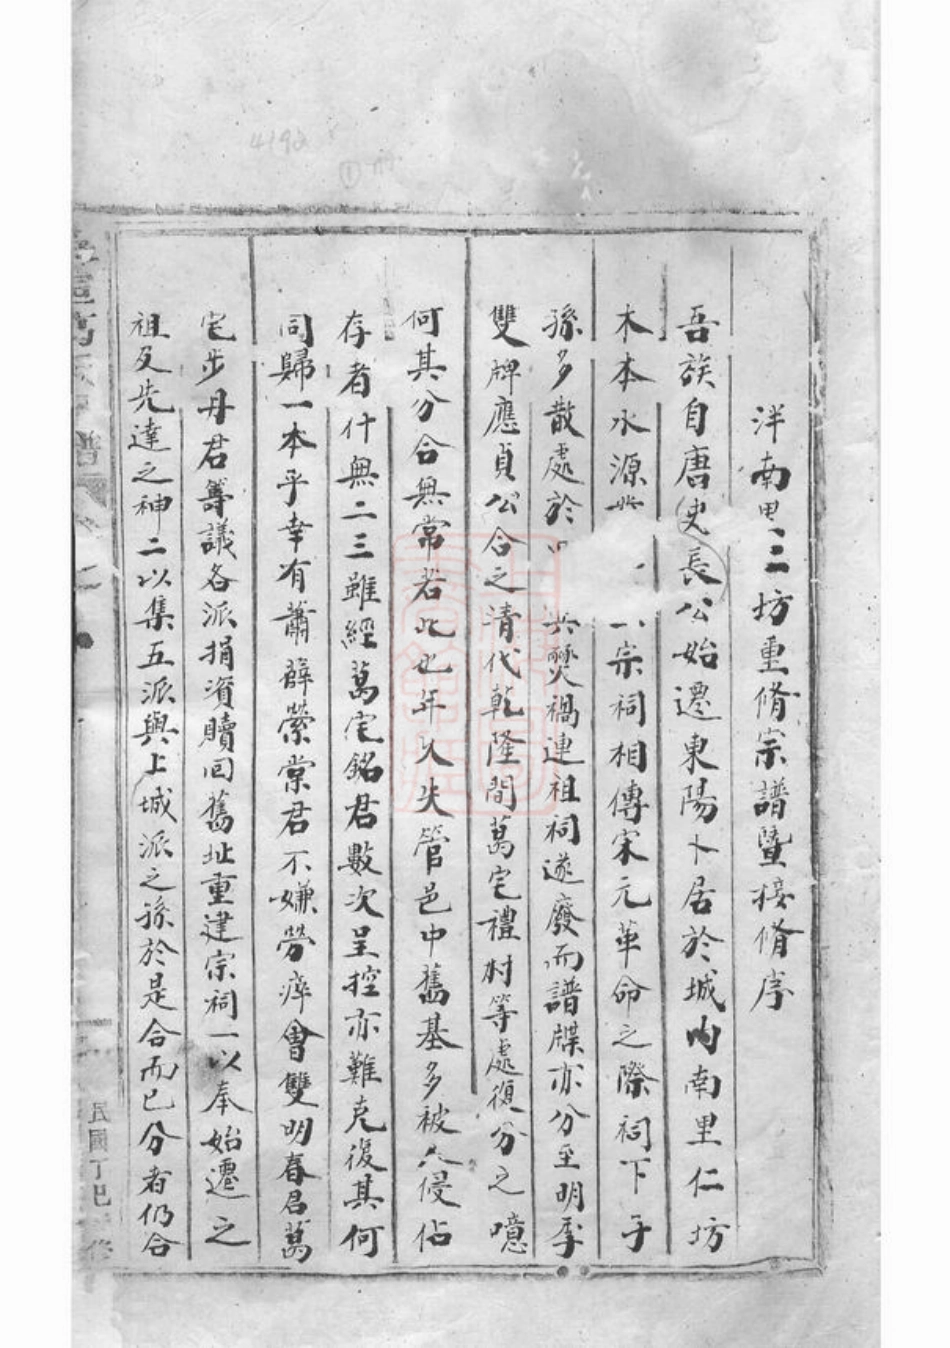 洋南里三坊重脩宗譜暨接脩序
吾族自唐史長公始遷東陽卜居於城內南里仁坊
木本水源 宗祠相傳宋元革命之際祠下子
孫多散處於 兵燹禍連祖祠遂廢而譜牒亦分至明季
雙牌應貞公合之清代乾隆間葛宅禮村等處復分之噫
何其分合無常若此也年久失管邑中舊基多被人侵佔
存者什無二三雖經葛宅銘君數次呈控亦難克復其何
同歸一本乎幸有蕭薛縈棠君不嫌勞瘁會雙明春君葛
宅步丹君籌議各派捐資贖回舊址重建宗祠一以奉始遷之
祖及先達之神二以集五派與上城派之孫於是合而已分者仍合
譜
民國丁巳 修
4192
①